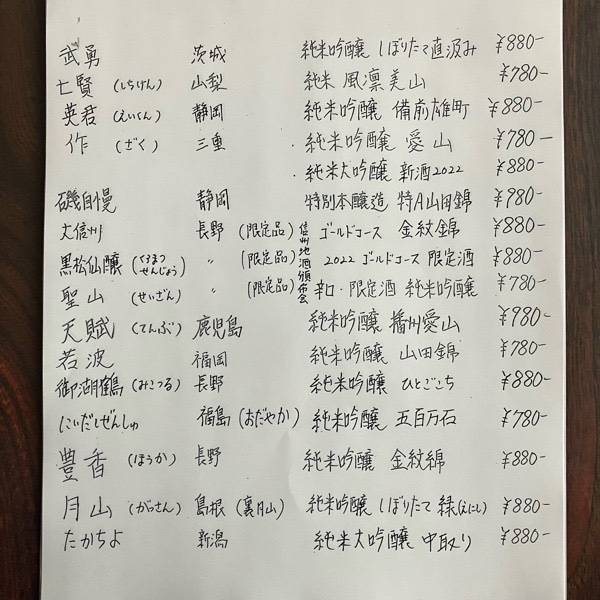 武勇 茨城 純米吟醸 しぼりたて直汲み ¥880-
七賢(しちけん) 山梨 純米 風凛美山 ¥780-
英君(えいくん) 静岡 純米吟醸 備前雄町 ¥880-
作(ざく) 三重 ・純米吟醸 愛山 ¥780-
・純米大吟醸 新酒2022 ¥880-
磯自慢 静岡 特別本醸造 特A山田錦 ¥980-
大信州 長野(限定品) ゴールドコース 金紋錦 ¥880-
黒松仙醸(くろまつせんじょう) 〃 (限定品) 2022 ゴールドコース 限定酒 ¥880-
聖山(せいざん) 〃 (限定品) 辛口・限定酒 純米吟醸 ¥780-
信州地酒頒布会
天賦(てんぶ) 鹿児島 純米吟醸 播州愛山 ¥980-
若波 福岡 純米吟醸 山田錦 ¥780-
御湖鶴(みこつる) 長野 純米吟醸 ひとごこち ¥880-
にいだしぜんしゅ 福島(おだやか) 純米吟醸 五百万石 ¥780-
豊香(ほうか) 長野 純米吟醸 金紋綿 ¥880-
月山(がっさん) 島根(裏月山) 純米吟醸 しぼりたて 縁(えにし) ¥880-
たかちよ 新潟 純米大吟醸 中取り ¥880-